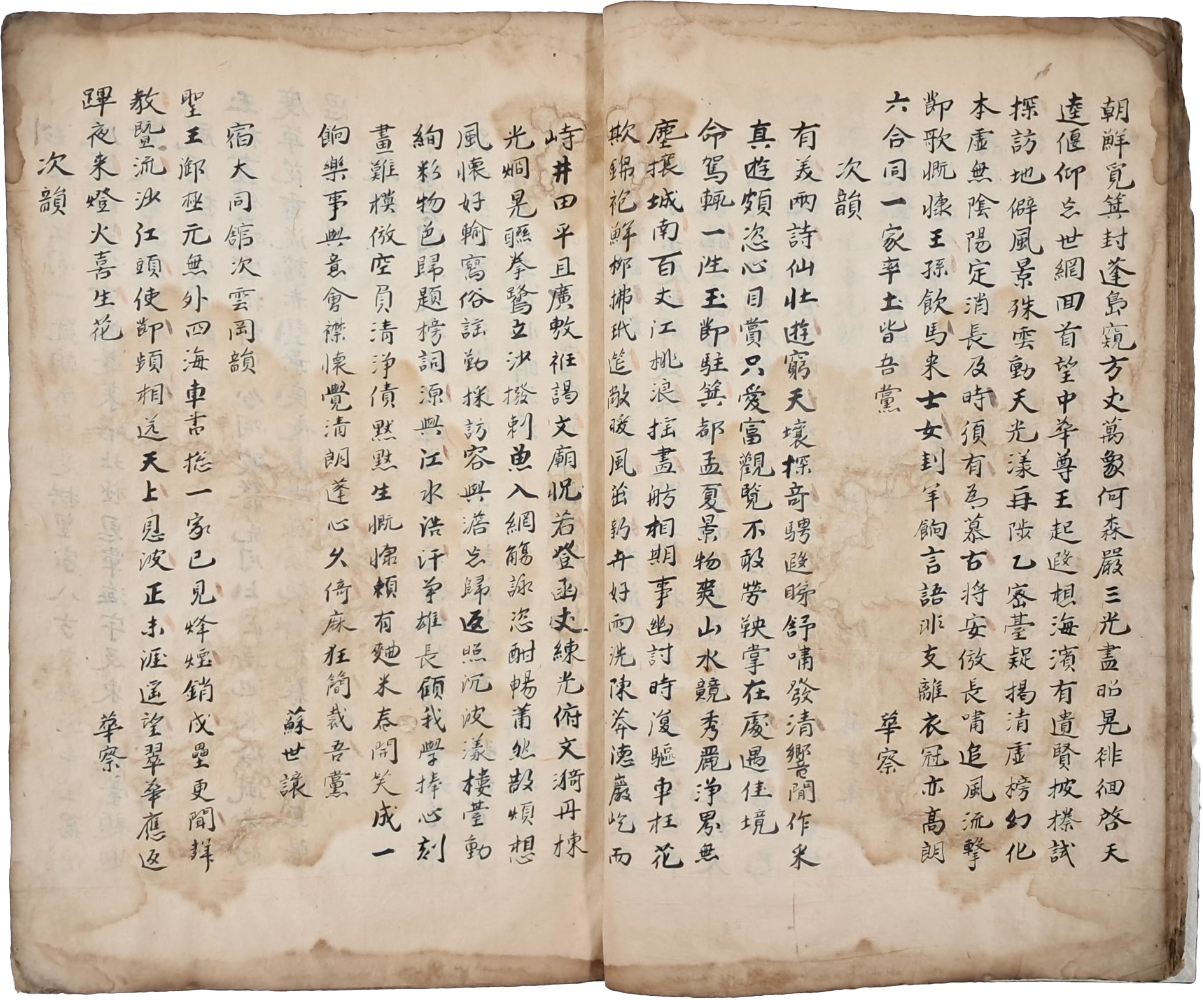 朝鮮覓箕封蓬島窺方丈萬象何森嚴三光盡昭晃徘徊啓天
逵偃仰忘世網回首望中華尊王起遐想海濱有遺賢披榛試
探訪地僻風景殊雲動天光漾再陟乙密臺疑揭清虛榜幻化
本虛無陰陽定消長及時須有為慕古將安倣長嘯追風流擊
節歌慨慷王孫飲馬來士女刲羊餉言語非支離衣冠亦高朗
六合同一家率土皆吾黨
華察
次韻
有美兩詩仙壯遊窮天壤探奇騁遐睇舒嘯發清響閒作采
真遊頗恣心目賞只愛富觀覽不敢勞鞅掌在處遇佳境
命駕輒一泩玉節駐箕都孟夏景物爽山水競秀麗淨界無
塵攘城南百丈江桃浪搖畫舫相期事幽討時復驅車枉花
欺錦袍鮮柳拂玳筵敞暖風茁豹卉好雨洗陳莽德巖屹而
峙井田平且廣敕袵謁文廟怳若登函丈練光俯文漪丹棟
光烱晃聯拳鷺立沙撥剌魚入網觴詠恣酣暢蕭然散煩想
風懷好輸寫俗謠勤採訪容與澹忘歸返照沉波漾樓臺動
絢彩物色歸題榜詞源與江水浩汗爭雄長顧我學捧心刻
畫難模倣空負清淨債默默生慨慷賴有麯米春開笑成一
餉樂事與意會襟懷覺清朗蓬心久倚麻狂簡裁吾黨
蘇世讓
宿大同館次雲岡韻
聖王御極元無外四海車書捴一家已見烽煙銷戍壘更聞鞮
教暨流沙江頭使節頻相送天上恩波正未涯遥望翠華應返
蹕夜来燈火喜生花
華察
次韻